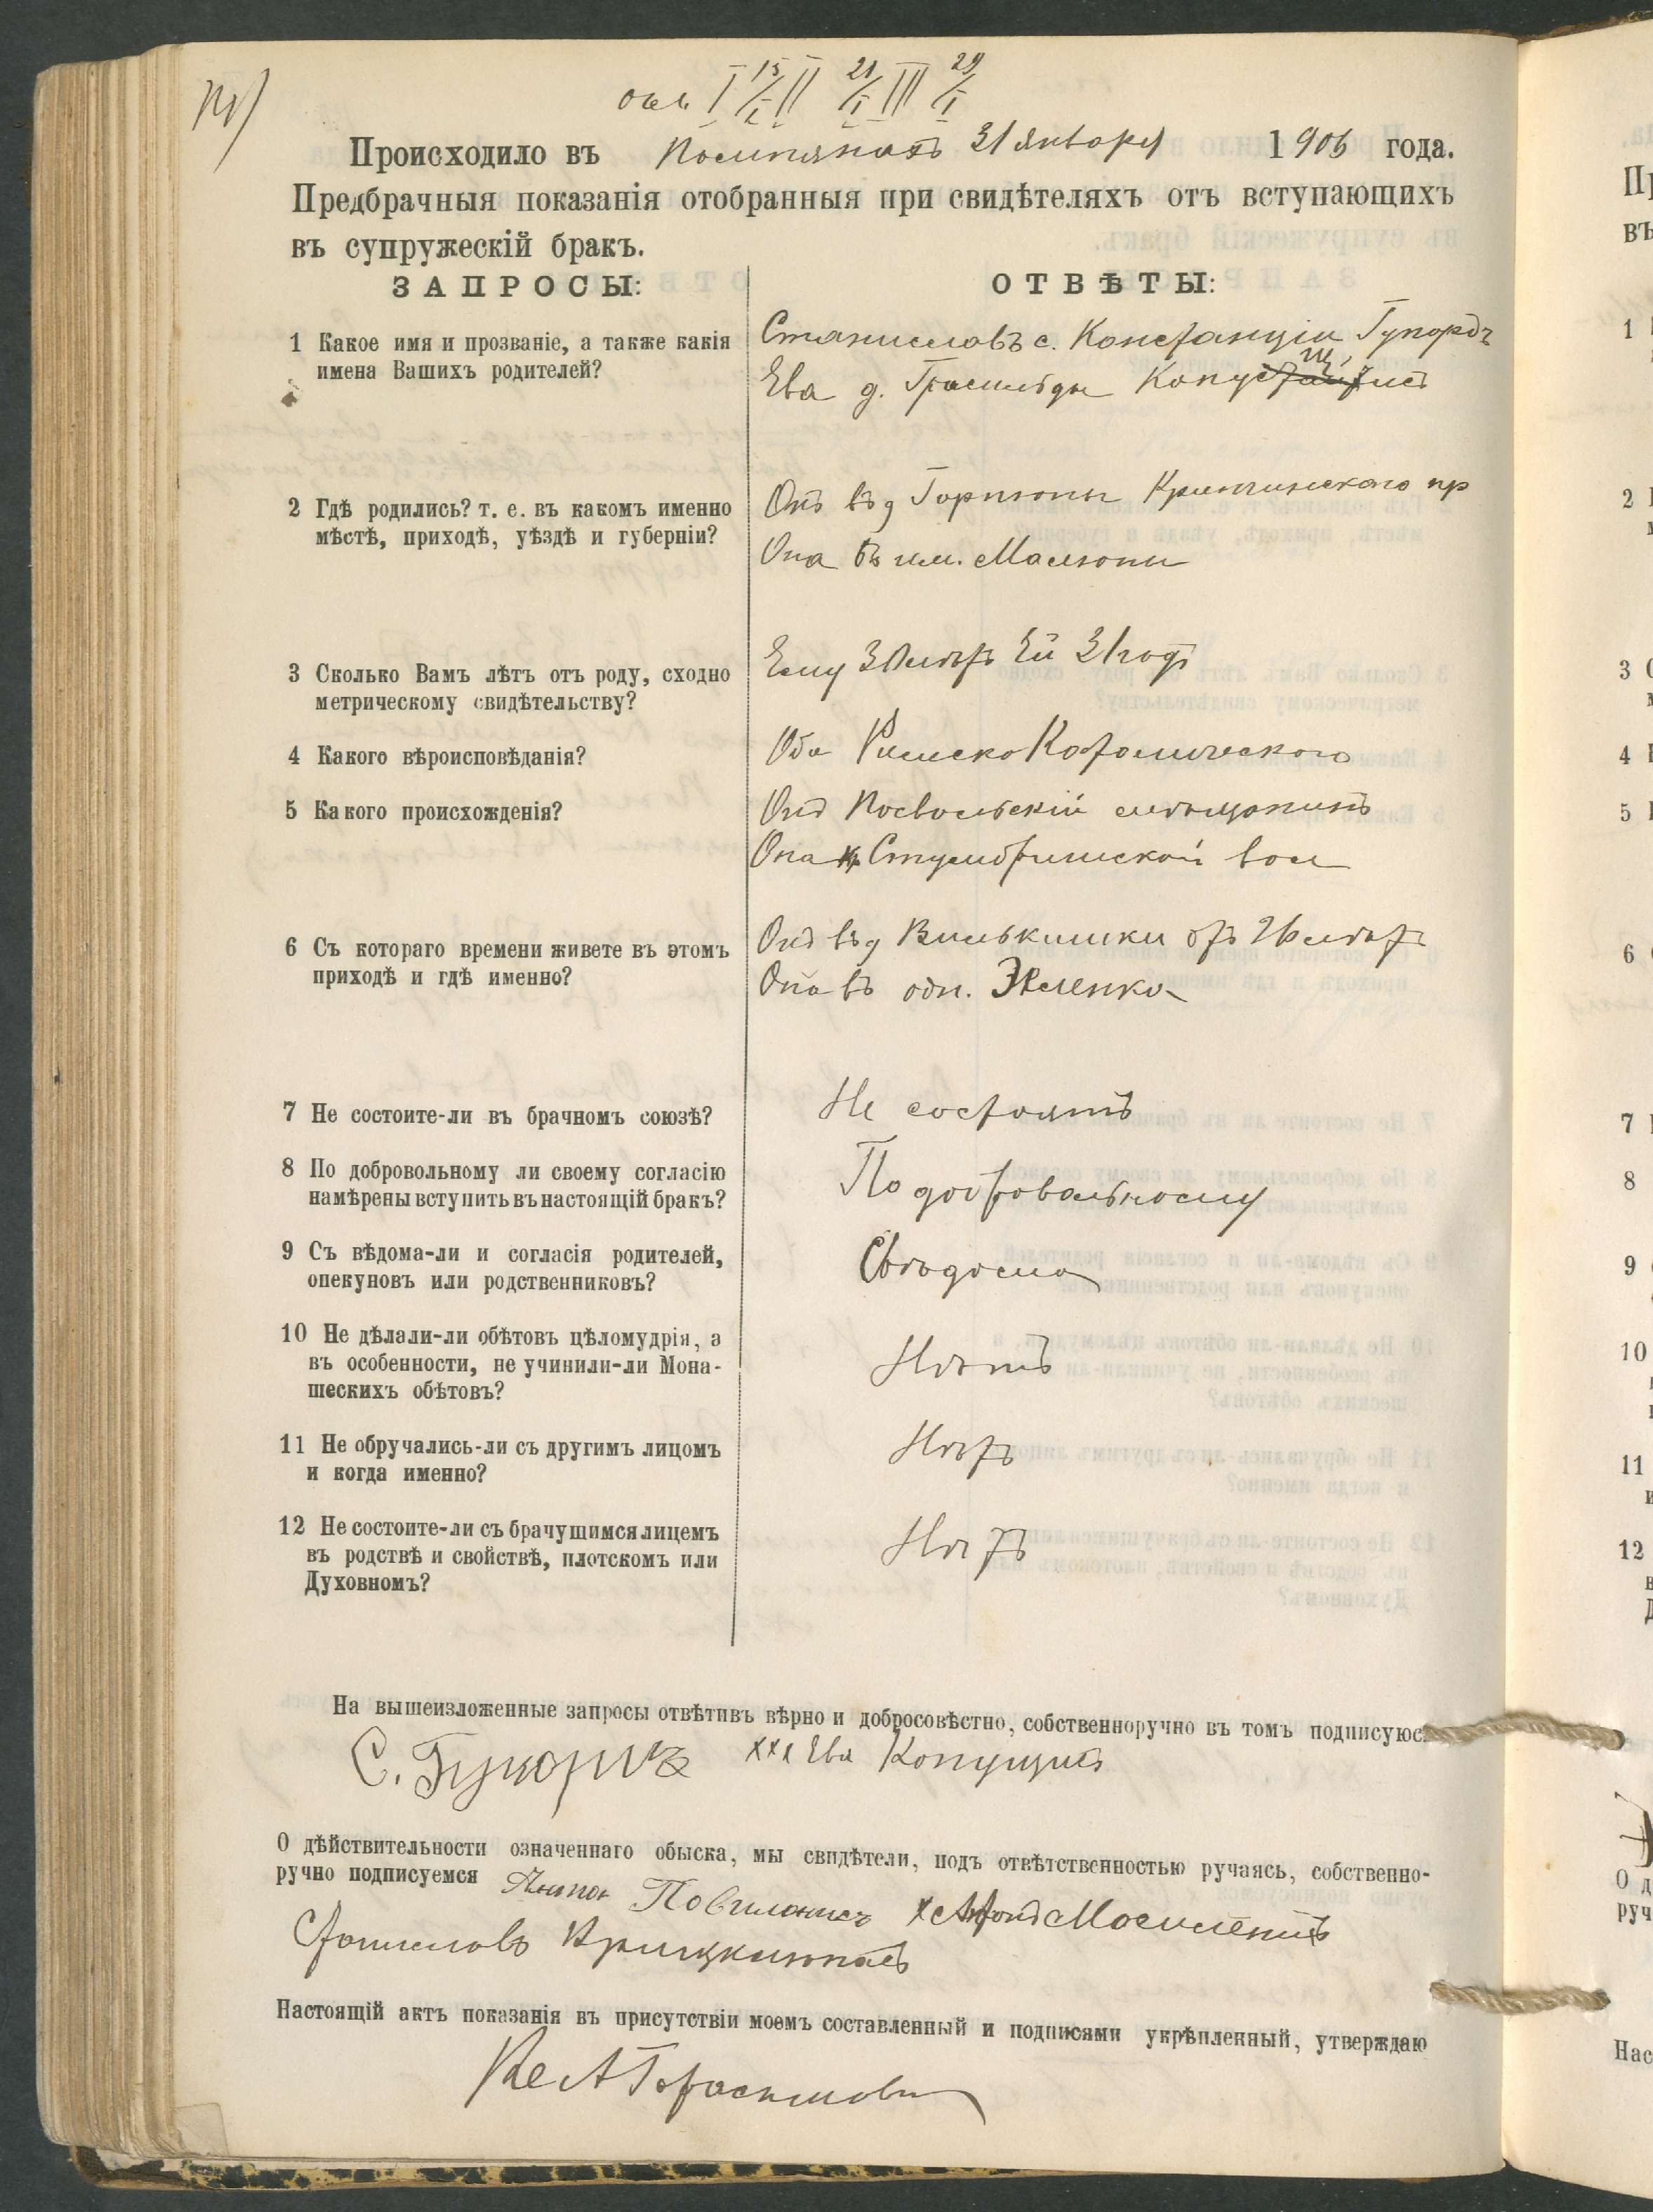 огл. I 15/I II 21/I III 29/I
Происходило въ Помпянахъ 31 Января 1906 года.
Предбрачныя показанія отобранныя при свидѣтеляхъ отъ вступающихъ
въ супружескій бракъ.
ЗАПРОСЫ:
ОТВѢТЫ:
1 Какое имя и прозваніе, а также какія
имена Вашихъ родителей?
Станиславъ с. Констанціи
Ева д. Гратильды
2 Гдѣ родились? т. е. въ какомъ именно
мѣстѣ, приходѣ, уѣздѣ и губерніи?
Онъ въ д Кринчинскаго пр
Она въ им. Малюны
3 Сколько Вамъ лѣтъ отъ роду, сходно
метрическому свидѣтельству?
Ему лѣтъ Ей 21 годъ
4 Какого вѣроисповѣданія?
Оба Римско Католическаго
5 Какого происхожденія?
Онъ Посвольскій мѣщанинъ
Она кр Стумбришской вол
6 Съ котораго времени живете въ этомъ
приходѣ и гдѣ именно?
Онъ въ д Вилькишки отъ лѣтъ
Она въ
7 Не состоите-ли въ брачномъ союзѣ?
Не состоятъ
8 По добровольному ли своему согласію
намѣрены вступить въ настоящій бракъ?
По добровольному
9 Съ вѣдома-ли и согласія родителей,
опекуновъ или родственниковъ?
Свѣдома
10 Не дѣлали-ли обѣтовъ цѣломудрія, а
въ особенности, не учинили-ли Мона-
шескихъ обѣтовъ?
Нѣтъ
11 Не обручались-ли съ другимъ лицомъ
и когда именно?
Нѣтъ
12 Не состоите-ли съ брачущимся лицемъ
въ родствѣ и свойствѣ, плотскомъ или
Духовномъ?
Нѣтъ
На вышеизложенные запросы отвѣтивъ вѣрно и добросовѣстно, собственноручно въ томъ подписуюс
С. ххх Ева Копущисъ
О дѣйствительности означеннаго обыска, мы свидѣтели, подъ отвѣтственностью ручаясь, собственно-
ручно подписуемся Антон Повилонисъ х Антонъ
Станиславъ
Настоящій актъ показанія въ присутствіи моемъ составленный и подписями укрѣпленный, утверждаю